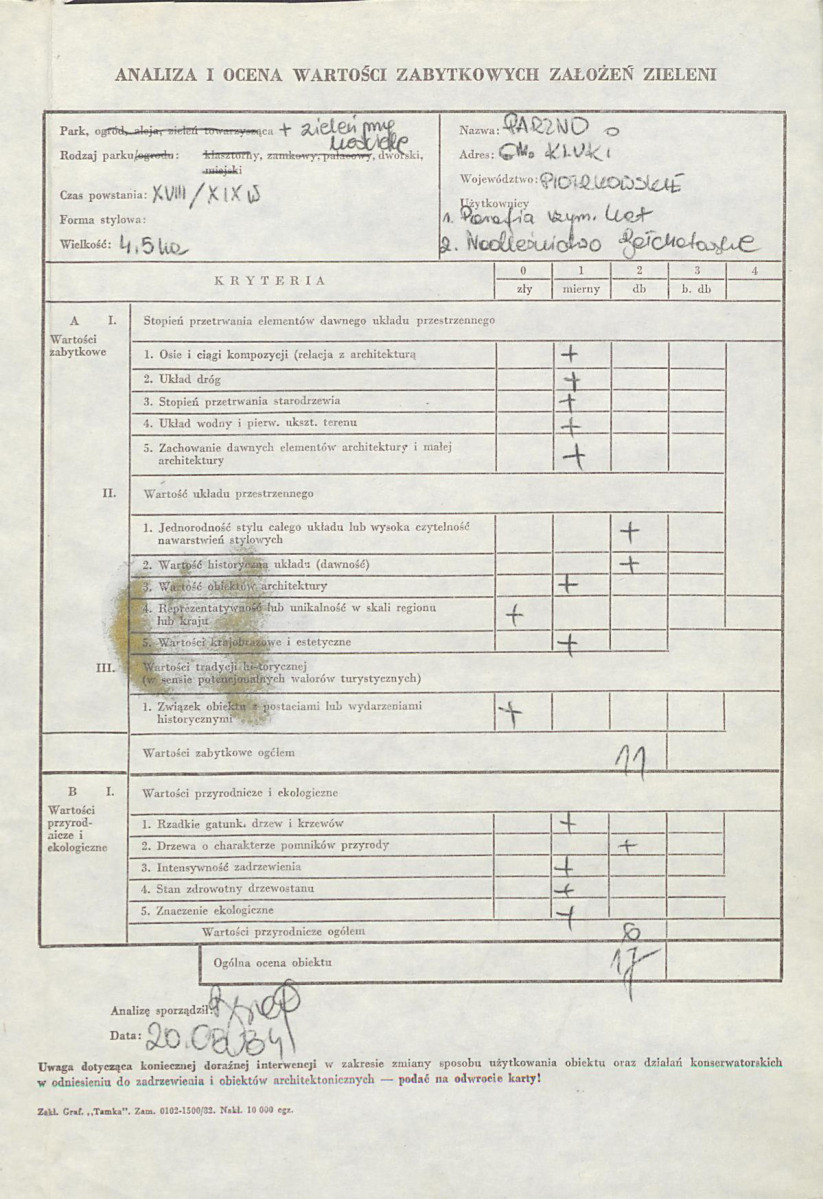 ANALIZA I OCENA WARTOŚCI ZABYTKOWYCH ZAŁOŻEŃ ZIELENI
Park, ogród, aleja, zieleń towarzysząca + zieleń przy
kościele
Rodzaj parku/ogrodu: klasztorny, zamkowy, pałacowy, dworski,
miejski
Czas powstania: XVIII/XIX w
Forma stylowa:
Wielkość: 4,5 ha
Nazwa: PARZNO
Adres: Gm. KLUKI
Województwo: PIOTRKOWSKIE
Użytkownicy
1. Parafia rzym. kat
2. Nadleśnictwo Bełchatowskie
KRYTERIA
0 1 2 3 4
zły mierny db b. db
A I. Stopień przetrwania elementów dawnego układu przestrzennego
Wartości
zabytkowe
1. Osie i ciągi kompozycji (relacja z architekturą +
2. Układ dróg +
3. Stopień przetrwania starodrzewia +
4. Układ wodny i pierw. ukszt. terenu +
5. Zachowanie dawnych elementów architektury i małej
architektury +
II. Wartość układu przestrzennego
1. Jednorodność stylu całego układu lub wysoka czytelność
nawarstwień stylowych +
2. Wartość historyczna układu (dawność) +
3. Wartość obiektów architektury +
4. Reprezentatywność lub unikalność w skali regionu
lub kraju +
5. Wartości krajobrazowe i estetyczne +
III. Wartości tradycji historycznej
(w sensie potencjonalnych walorów turystycznych)
1. Związek obiektu z postaciami lub wydarzeniami
historycznymi +
Wartości zabytkowe ogółem 11
B I. Wartości przyrodnicze i ekologiczne
Wartości
przyrod-
nicze i
ekologiczne
1. Rzadkie gatunk. drzew i krzewów +
2. Drzewa o charakterze pomników przyrody +
3. Intensywność zadrzewienia +
4. Stan zdrowotny drzewostanu +
5. Znaczenie ekologiczne +
Wartości przyrodnicze ogółem 6
Ogólna ocena obiektu 17
Analizę sporządził:
Data: 20.08.84
Uwaga dotycząca koniecznej doraźnej interwencji w zakresie zmiany sposobu użytkowania obiektu oraz działań konserwatorskich
w odniesieniu do zadrzewienia i obiektów architektonicznych — podać na odwrocie karty!
Zakł. Graf. „Tamka". Zam. 0102-1500/82. Nakł. 10 000 egz.